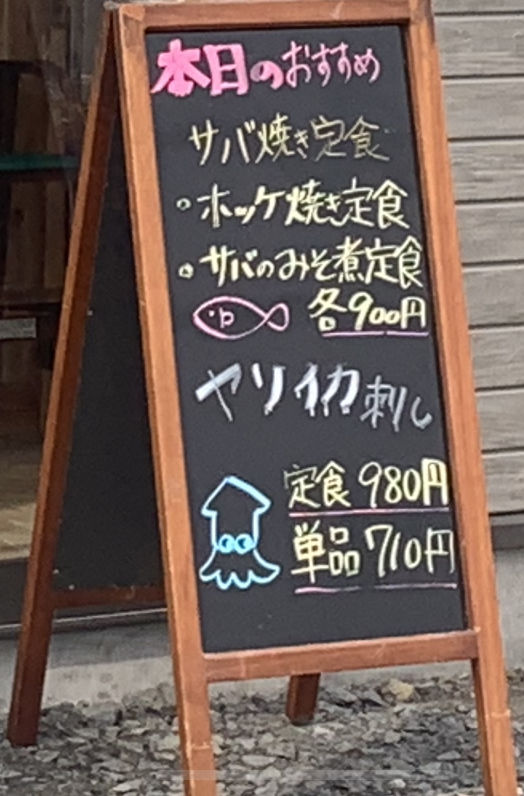 本日のおすすめ
サバ焼き定食
・ホッケ焼き定食
・サバのみそ煮定食
各900円
ヤリイカ刺し
定食 980円
単品 710円